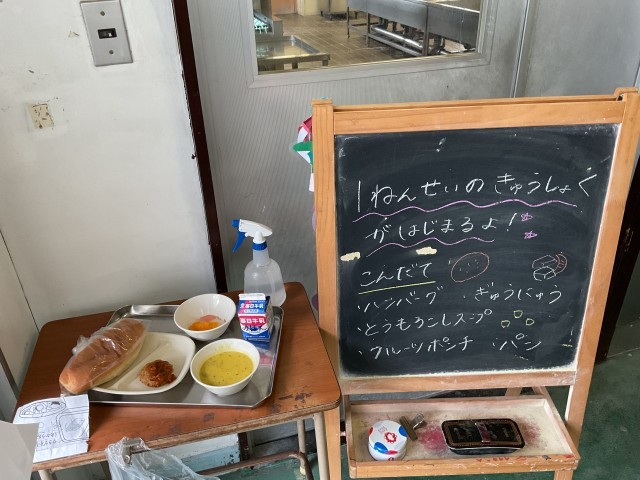 1ねんせいの きゅうしょく
がはじまるよ！
こんだて
・ハンバーグ ・ぎゅうにゅう
・とうもろこしスープ
・フルーツポンチ ・パン